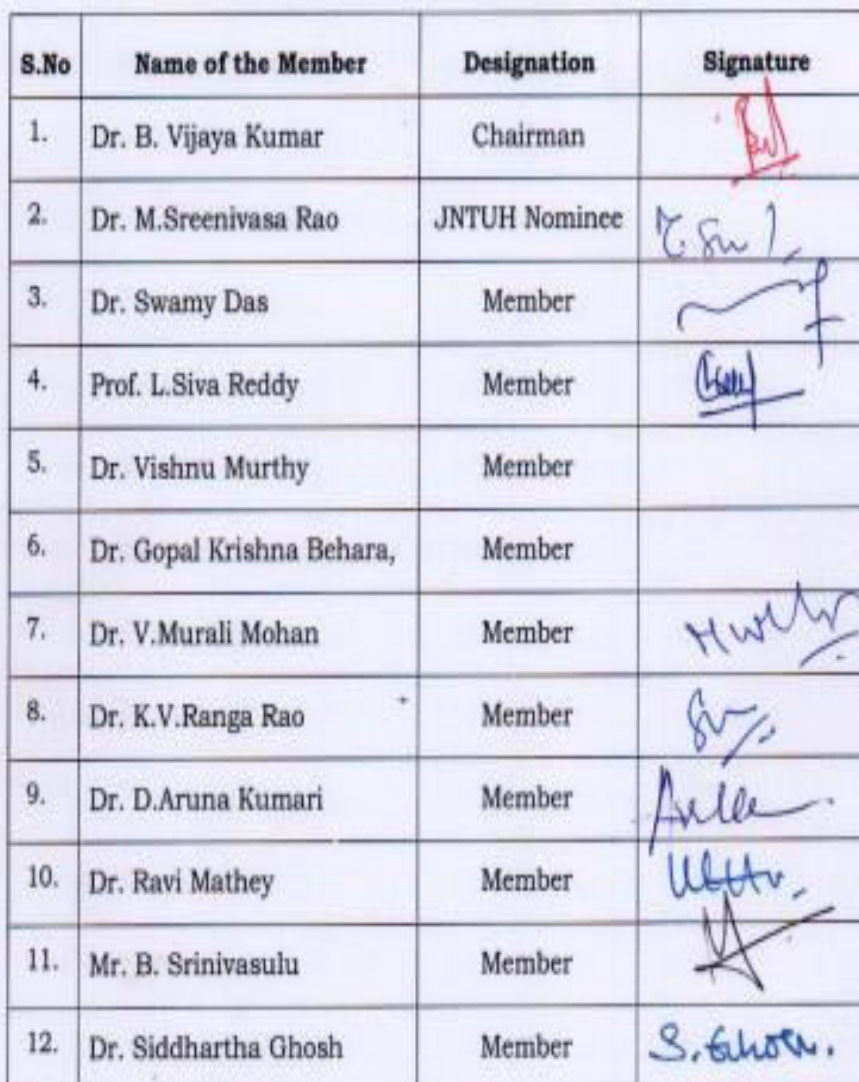 S.No Name of the Member Designation Signature
1. Dr. B. Vijaya Kumar Chairman
2. Dr. M.Sreenivasa Rao JNTUH Nominee
3. Dr. Swamy Das Member
4. Prof. L.Siva Reddy Member
5. Dr. Vishnu Murthy Member
6. Dr. Gopal Krishna Behara, Member
7. Dr. V.Murali Mohan Member
8. Dr. K.V.Ranga Rao Member
9. Dr. D.Aruna Kumari Member
10. Dr. Ravi Mathey Member
11. Mr. B. Srinivasulu Member
12. Dr. Siddhartha Ghosh Member S. Ghosh.